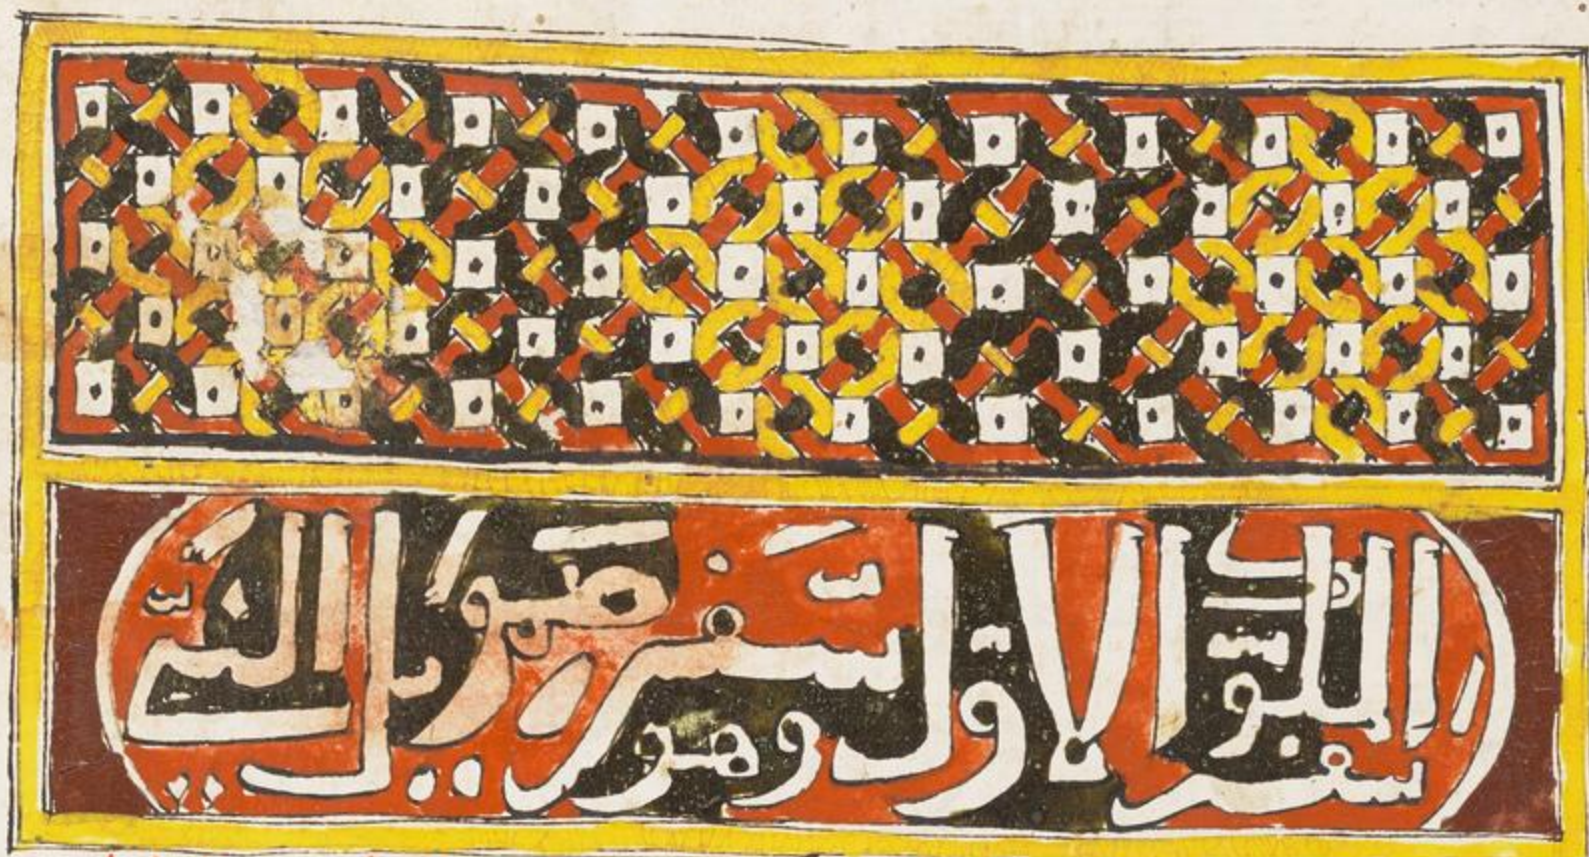 سفر الملوك الاول وهو سفر صمويل النبي